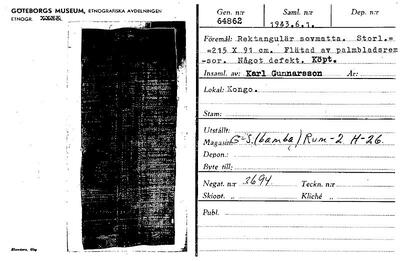 GÖTEBORGS MUSEUM, ETNOGRAFISKA AVDELNINGEN
ETNOGR.
Gen. n:r Saml. n:r Dep. n:r
64862 1943.6.1.
Föremål: Rektangulär sovmatta. Storl.=
=215 X 91 cm. Flätad av palmbladsrem
-sor. Något defekt. Köpt.
Insaml. av: Karl Gunnarsson År:
Lokal: Kongo.
Stam:
Utställt:
Magasin: G=S.(bamba) Rum-2 H-26.
Depon.:
Byte till:
Negat. n:r 3694. Teckn. n:r
Skiopt. „ Kliché „
Publ.